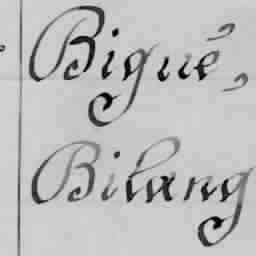 Bigué,
Bilang